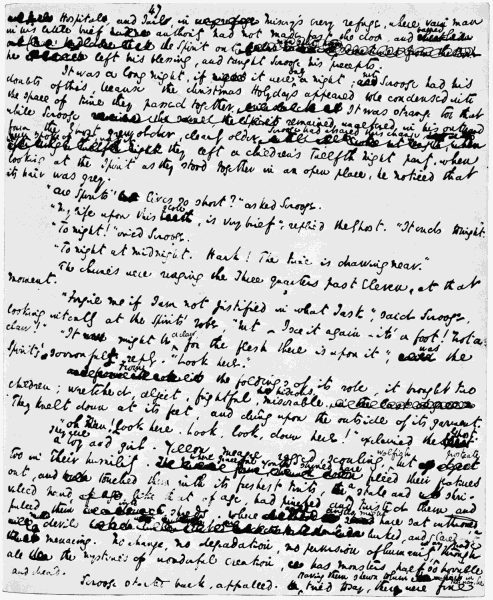 47
Hospitals, and Jails, in misery's every refuge, where vain man
in his little brief authority had not made fast the door, and barred
the Spirit out
he left his blessing, and taught Scrooge his precepts.
It was a long night, if it were only a night; but Scrooge had his
doubts of this, because the Christmas Holydays appeared to be condensed into
the space of time they passed together. It was strange too that
while Scrooge remained unaltered in his outward
form the Ghost grew older, clearly older. Scrooge had observed this change
they left a children's Twelfth Night party, when
looking at the Spirit as they stood together in an open place, he noticed that
it hair was grey.
"Are Spirits' lives so short?" asked Scrooge.
"My life upon this globe, is very brief", replied the Ghost. "It ends tonight."
"To night!" cried Scrooge.
"To night at midnight. Hark! The time is drawing near."
The chimes were ringing the three quarters past Eleven, at that
moment.
"Forgive me if I am not justified in what I ask", said Scrooge,
looking intently at the Spirit's robe, "but I see it again - it's a foot! Not a
claw!"
"It might be a claw for the flesh there is upon it", was the
Spirit's sorrowful reply. "Look here."
From the foldings of its robe, it brought two
children; wretched, abject, frightful, hideous, miserable.
They knelt down at its feet, and clung upon the outside of its garment.
"Oh Man! look here. Look, look, down here!" exclaimed the Ghost.
They were
a boy and girl. Yellow, meagre, ragged, scowling, wolfish, but prostrate
too in their humility. Where graceful youth should have filled their features
out, and touched them with its freshest tints, a stale and shri-
velled hand, like that of age, had pinched and twisted them and
pulled them into shreds. Where angels might have sat enthroned
devils lurked, and glared
out menacing. No change, no degradation, no perversion of humanity, in any grade, through
all the mysteries of wonderful creation, has monsters half so horrible
and dread.
Scrooge started back, appalled. Having them shewn to him in this way, he
tried to say, they were fine